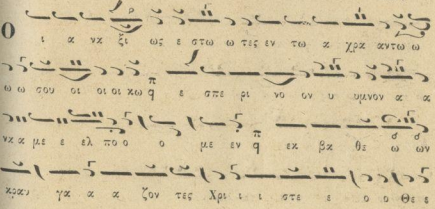 Ο ι α να ξι ως ε στω ω τες εν τω α χρα αντω ω
ω ω σου οι οι οι κω π q ε σπε ρι νο ον υ υμνον α α
να α με ε ελ πο ο ο με εν π q εκ βα θε ω ων
κραυ γα α α ζον τες Χρι ι ι στε ε ο ο Θε ε